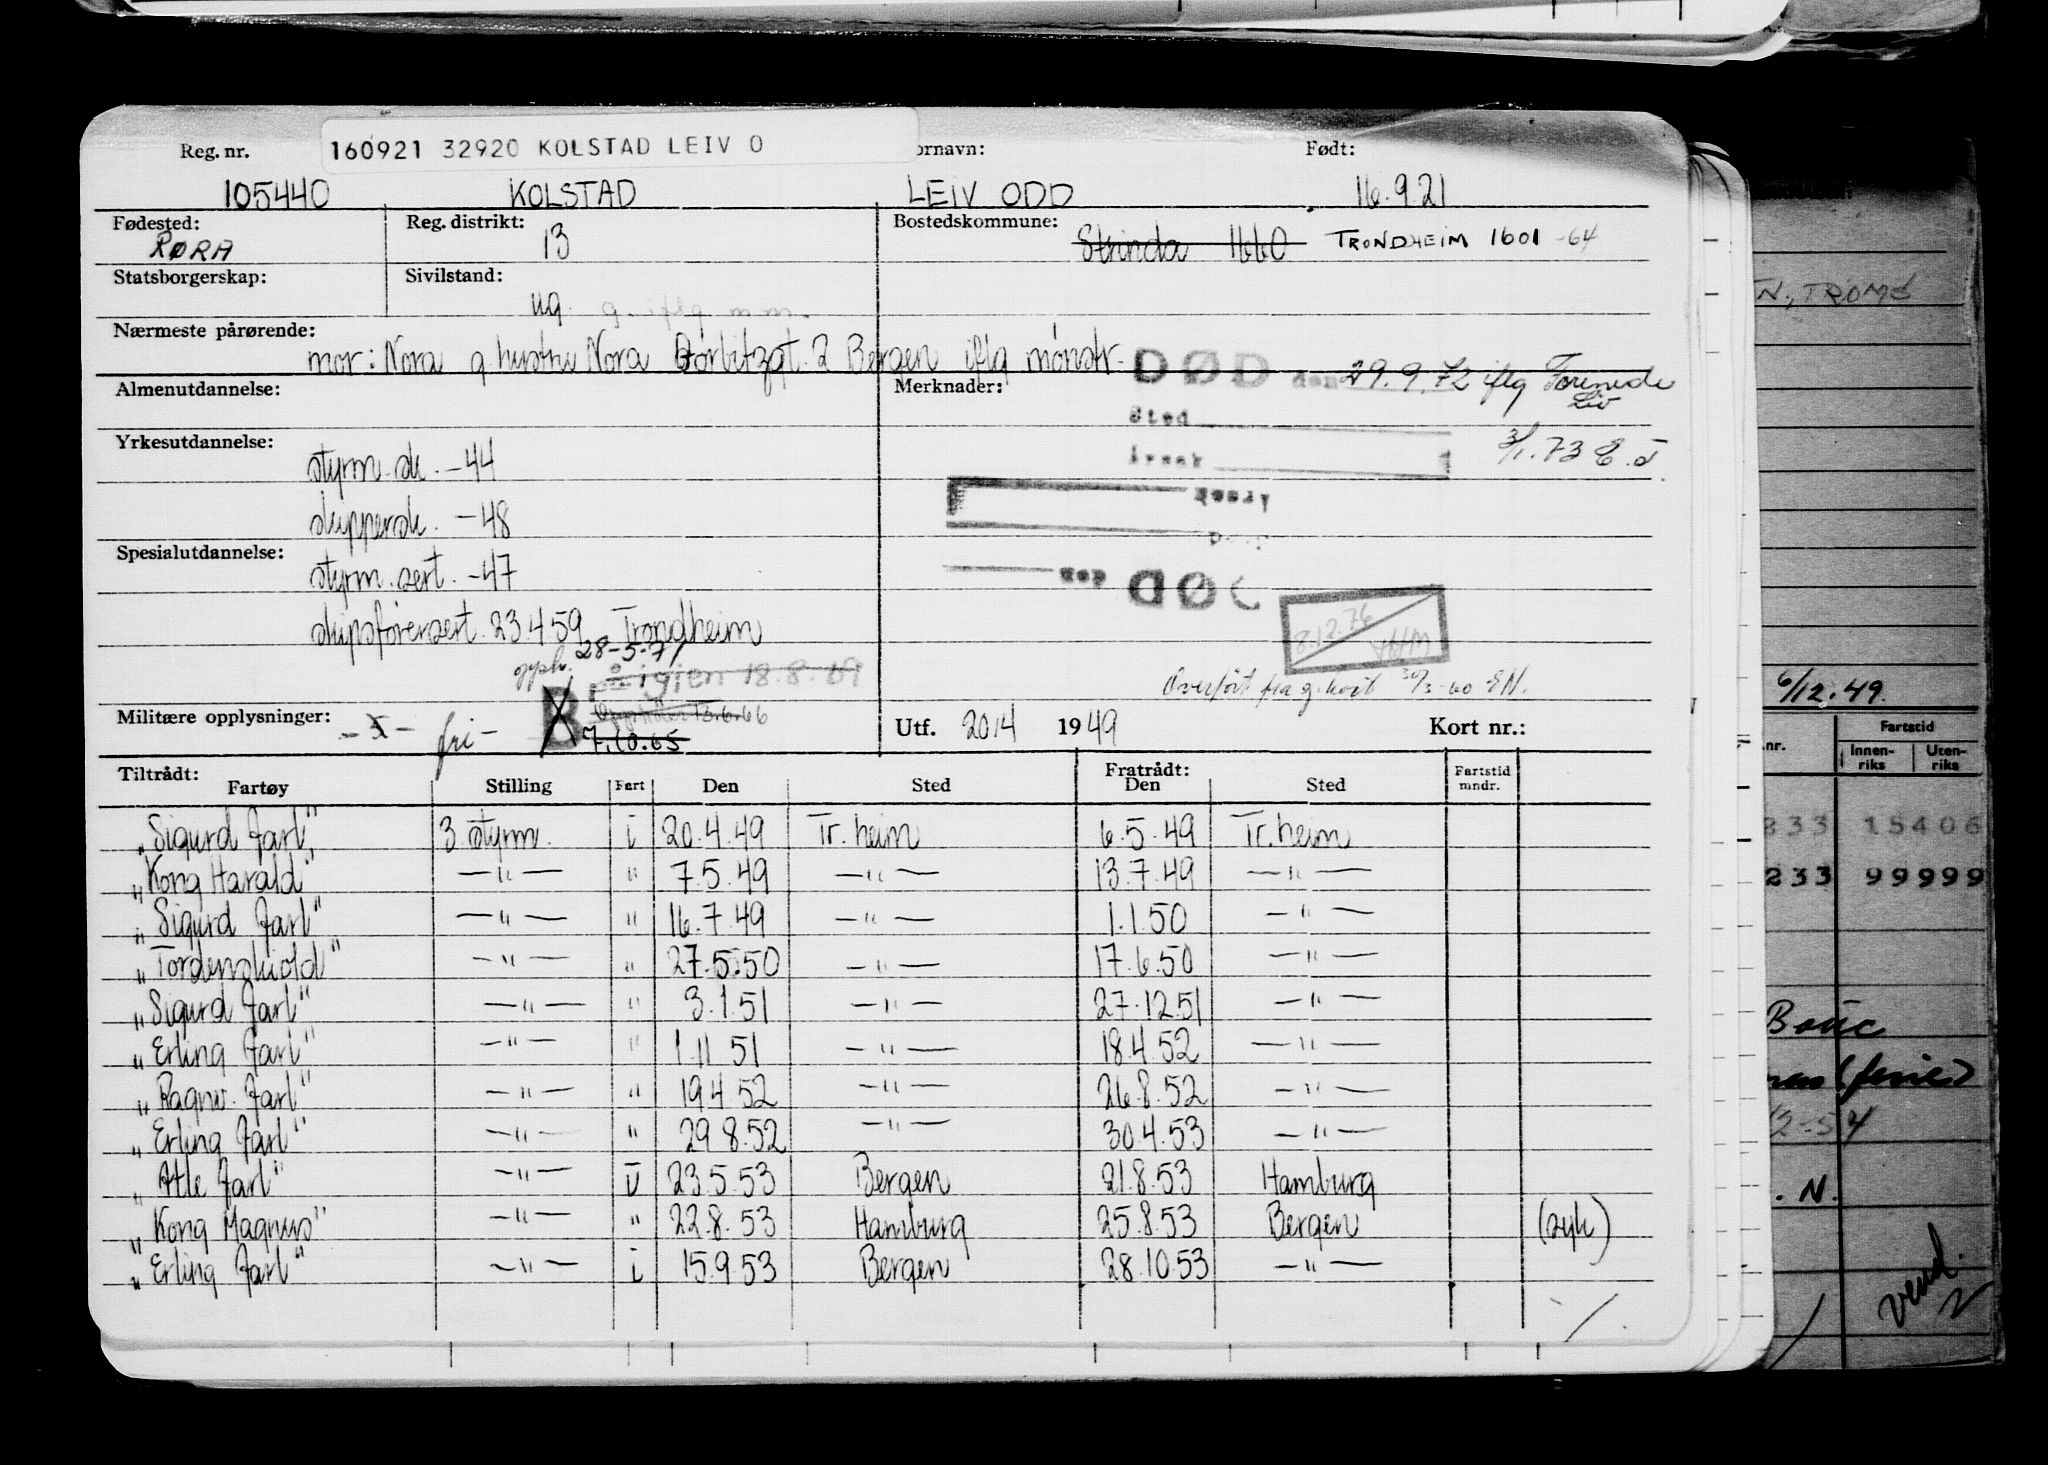 Reg. nr. 160921 32920 KOLSTAD LEIV O ornavn: Født:
105440 KOLSTAD LEIV ODD 16.9.21
Fødested: Reg. distrikt: Bostedskommune:
RØRA 13 Strinda 1660 TRONDHEIM 1601 -64
Statsborgerskap: Sivilstand:
ug. g. iflg m.m.
Nærmeste pårørende:
mor: Nora g. hustru Nora 2 Bergen iflg mønstr.
DØD den 29.9.72 iflg Forenede Liv
Almenutdannelse: Merknader:
Sted
Yrkesutdannelse:
styrm.sk. -44
Årsak 3/1.73 E.J
skippersk. -48
Årsak
Spesialutdannelse:
styrm.sert. -47
den DØD
skipsførersert. 23.4.59 Trondheim
8.12.76
opph. 28-5-71
igjen 18.8.69
Overført fra g. kort 30/3-60 EN.
Militære opplysninger: -X- fri- B Opphører 13.6.66
7.10.65
Utf. 20/4 1949 Kort nr.:
Tiltrådt: Fratrådt:
Fartøy Stilling Fart Den Sted Den Sted Fartstid mndr.
"Sigurd Jarl" 3 styrm. i 20.4.49 Tr.heim 6.5.49 Tr.heim
"Kong Harald" —"— " 7.5.49 —"— 13.7.49 —"—
"Sigurd Jarl" —"— " 16.7.49 —"— 1.1.50 —"—
"Tordenskiold" —"— " 27.5.50 —"— 17.6.50 —"—
"Sigurd Jarl" —"— " 3.1.51 —"— 27.12.51 —"—
"Erling Jarl" —"— " 1.11.51 —"— 18.4.52 —"—
"Ragnv. Jarl" —"— " 19.4.52 —"— 26.8.52 —"—
"Erling Jarl" —"— " 29.8.52 —"— 30.4.53 —"—
"Atle Jarl" —"— u 23.5.53 Bergen 21.8.53 Hamburg
"Kong Magnus" —"— " 22.8.53 Hamburg 25.8.53 Bergen (syk)
"Erling Jarl" —"— i 15.9.53 Bergen 28.10.53 —"—
N., TROMS
6/12.49.
nr. Fartstid
Innen-riks Uten-riks
233 15406
233 99999
(ferie)
12-54
. N.
vend